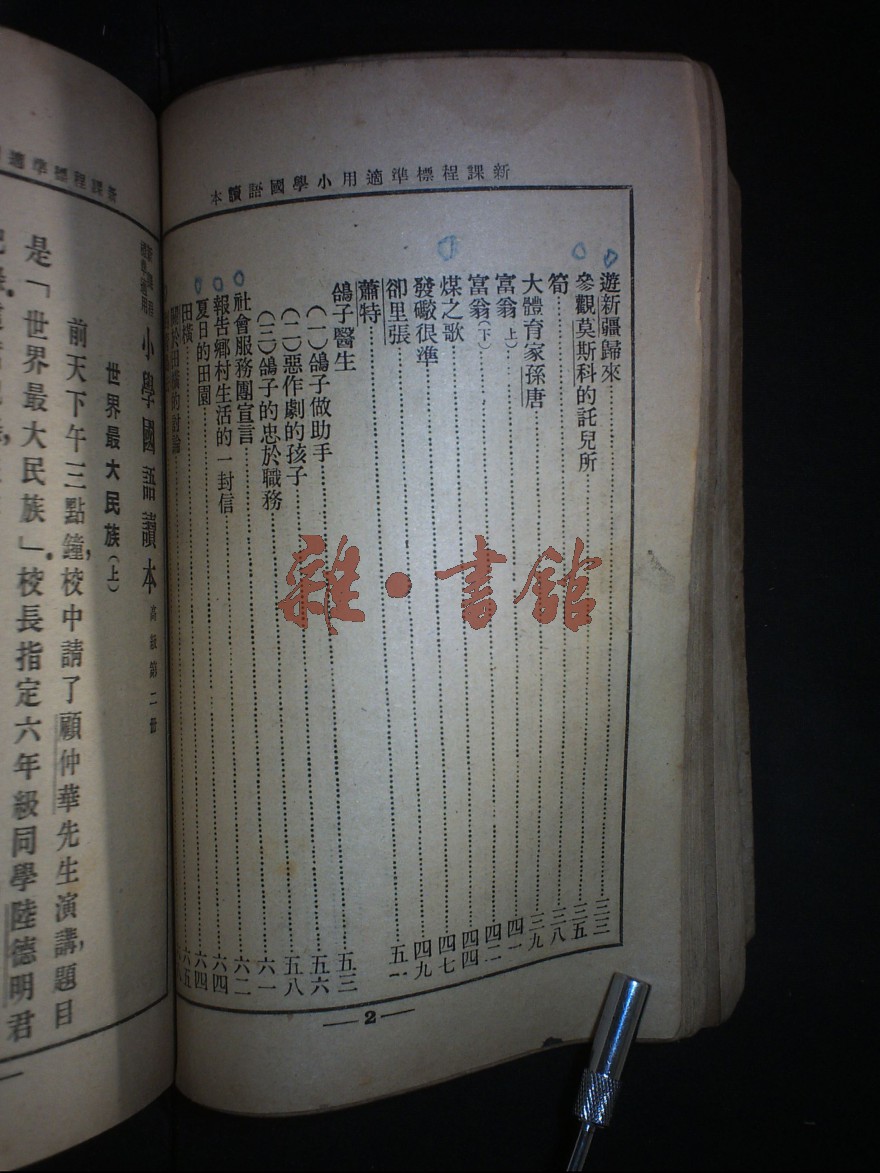 新課程標準適用小學國語讀本
遊新疆歸來 三三
參觀莫斯科的託兒所 三五
筍 三八
大體育家孫唐 三九
富翁(上) 四一
富翁(下) 四二
煤之歌 四四
發礮很準 四七
卻里張 四九
蕭特 五一
鴿子醫生 五三
(一)鴿子做助手 五六
(二)惡作劇的孩子 五八
(三)鴿子的忠於職務 六一
社會服務團宣言 六二
報告鄉村生活的一封信 六四
夏日的田園 六四
田橫 六五
關於田橫的討論
—2—
雜·書館
新課程標準適
小學國語讀本 高級第二冊
世界最大民族(上)
前天下午三點鐘，校中請了顧仲華先生演講，題目
是「世界最大民族」。校長指定六年級同學陸德明君